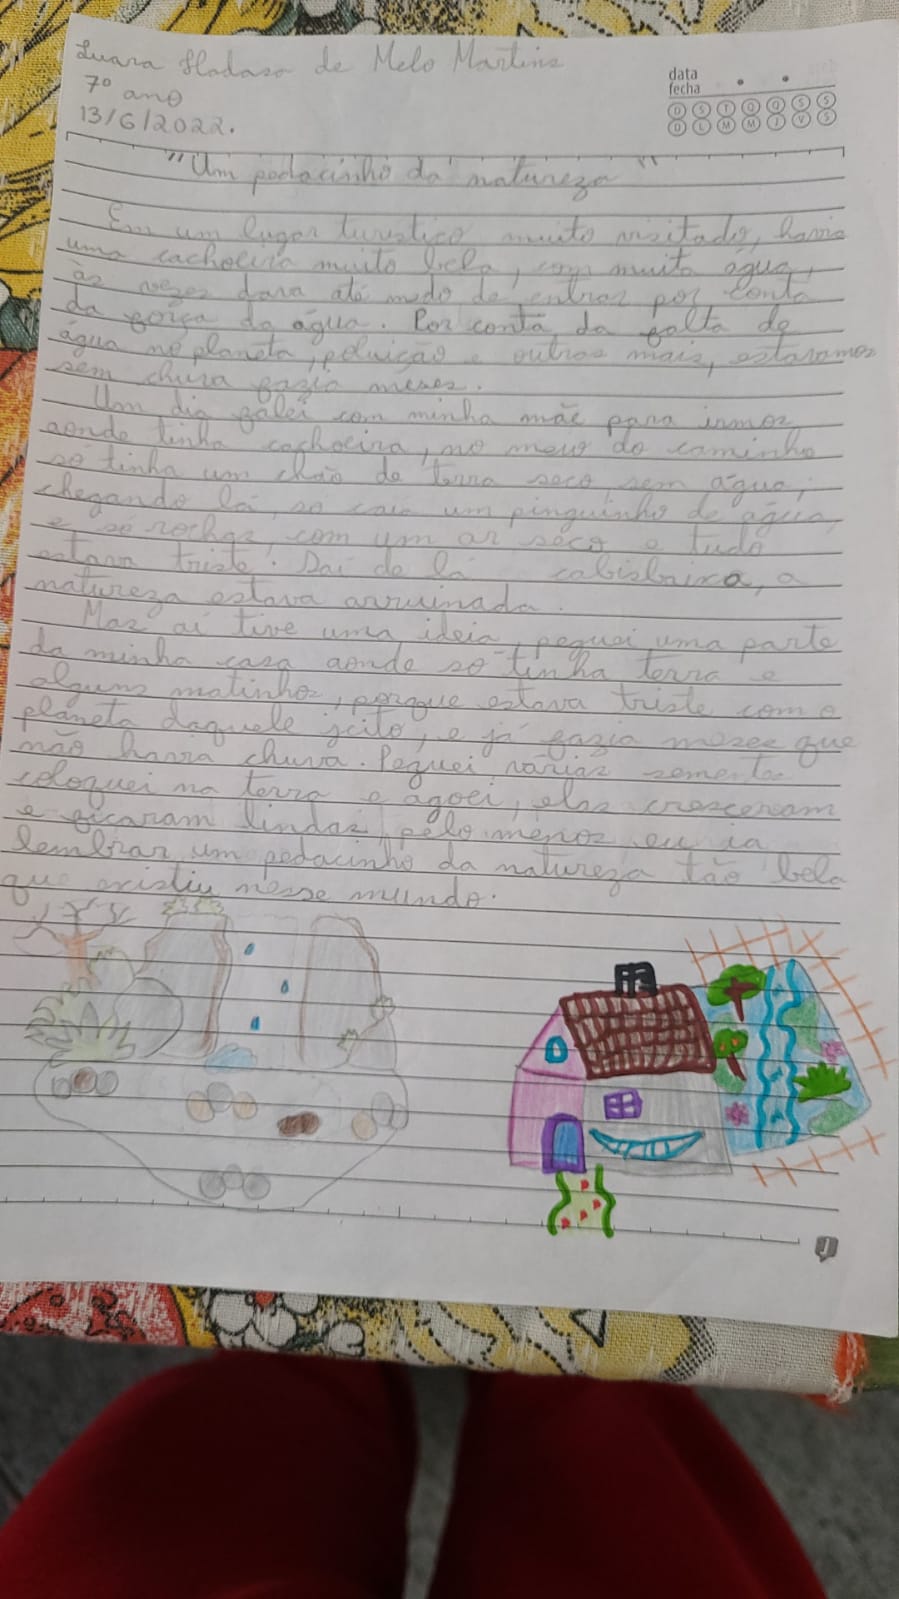 Luara Hadasa de Melo Martins
7º ano
13/6/2022.
data
fecha
D S T Q Q S S
D L M M J V S
"Um pedacinho da natureza"
Em um lugar turistico muito visitado, havia
uma cachoeira muito bela, com muita água,
às vezes dava até medo de entrar por conta
da força da água. Por conta da falta de
água no planeta, poluição e outros mais, estavamos
sem chuva fazia meses.
Um dia falei com minha mãe para irmos
aonde tinha cachoeira, no meio do caminho
só tinha um chão de terra seco, sem água,
chegando lá, só caia um pinguinho de água,
e só rochas, com um ar seco e tudo
estava triste. Saí de lá cabisbaixa, a
natureza estava arruinada.
Mas aí tive uma ideia, peguei uma parte
da minha casa aonde só tinha terra e
alguns matinhos, porque estava triste com o
planeta daquele jeito, e já fazia meses que
não havia chuva. Peguei várias sementes
coloquei na terra e agoei, elas cresceram
e ficaram lindas, pelo menos eu ia
lembrar um pedacinho da natureza tão bela
que existiu nesse mundo.